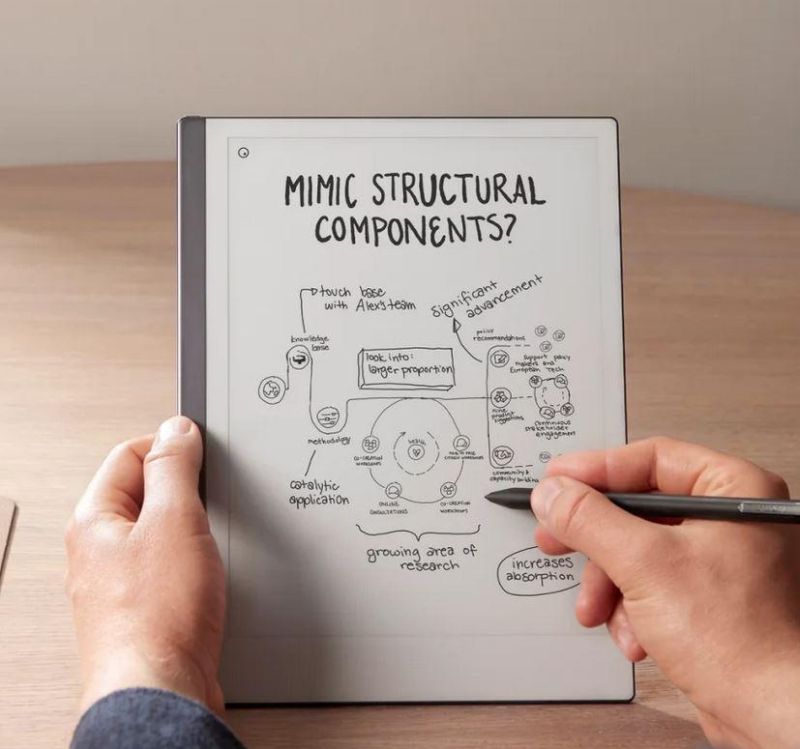 MIMIC STRUCTURAL
COMPONENTS?
touch base
with Alex's team
significant
advancement
knowledge
base
look into:
larger proportion
policy
recommendations
support policy
makers and
European Tech
methodology
CO-CREATION
WORKSHOPS
continuous
stakeholder
engagement
ONLINE
CONSULTATIONS
CO-CREATION
WORKSHOPS
community &
capacity building
catalytic
application
growing area of
research
increases
absorption